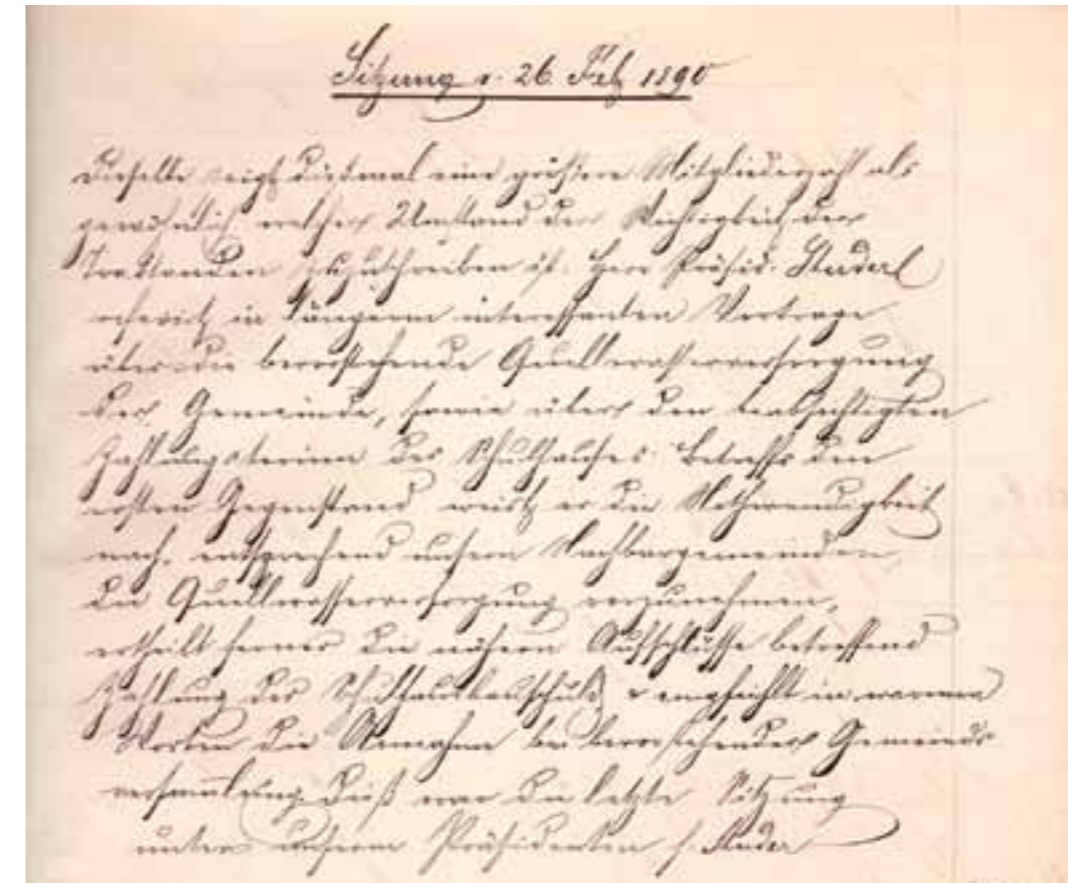 Sitzung v. 26. Feb 1890
Dieselbe zeigt dießmal eine größere Mitgliederzahl als
gewöhnlich welcher Umstand der Wichtigkeit der
Traktanden zuzuschreiben ist. Herr Präsid. Studer
in längerm interessanten Vortrage
über die bevorstehende Quellwasserversorgung
der Gemeinde, sowie über den beabsichtigten
Zahlungstermin des Schulhauses. Betreffs den
ersten Gegenstand weist er die Nothwendigkeit
nach, entsprechend unsern Nachbargemeinden
die Quellwasserversorgung vorzunehmen,
ertheilt ferner die nähern Aufschlüsse betreffend
Zahlung der Schulhausbauschuld & empfiehlt in warmen
Worten die Annahme bei bevorstehender Gemeinds
versam̅lung. Dieß war die letzte Sitzung
unter unserm Präsidenten H. Studer